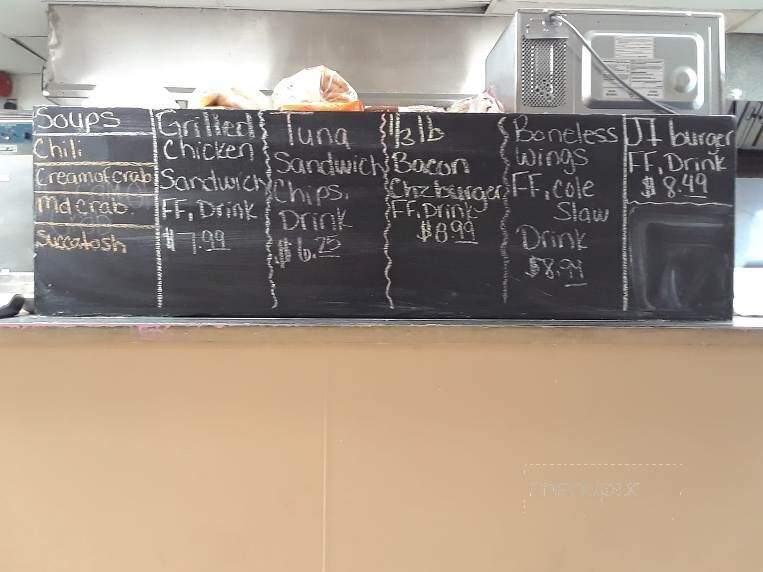 Soups
Chili
Cream of crab
Md Crab
Succatosh
Grilled
Chicken
Sandwich
FF, Drink
$7.99
Tuna
Sandwich
Chips,
Drink
$6.25
1/3 lb
Bacon
Chzburger
FF, Drink
$8.99
Boneless
Wings
FF, cole
Slaw
Drink
$8.99
JI burger
FF, Drink
$8.49
menupix